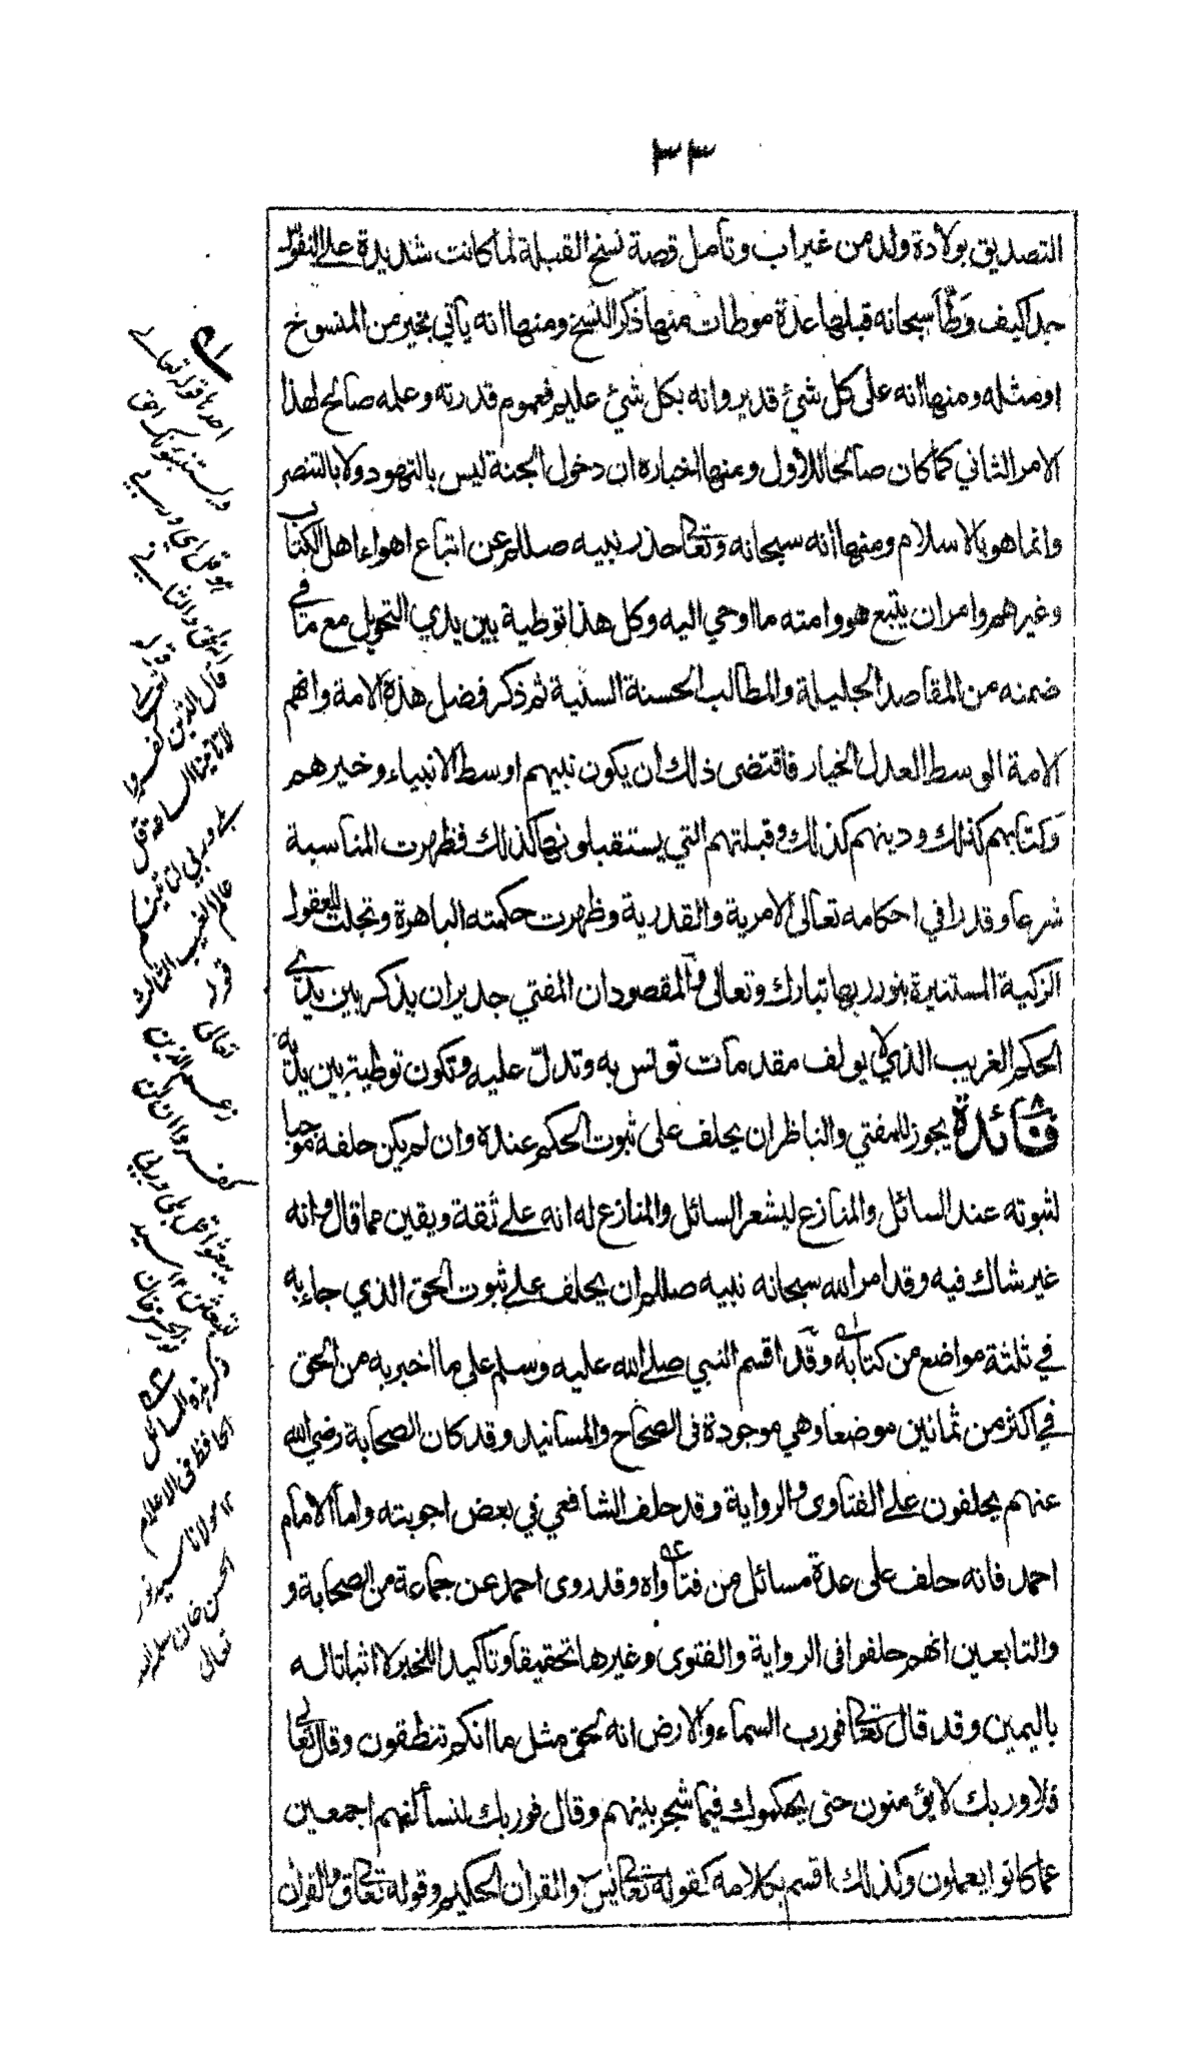 ٣٣
التصديق بولادة ولد من غير اب وتأمل قصة نسخ القبلة لما كانت شديدة على النفوس
جدا كيف وَطَّأ سبحانه قبلها عدة موطات منها ذكر النسخ ومنها انه يأتي بخير من المنسوخ
او مثله ومنها انه على كل شئ قدير وانه بكل شئ عليم فعموم قدرته وعلمه صالح لهذا
الامر الثاني كما كان صالحا للاول ومنها اخباره ان دخول الجنة ليس بالتهود ولا بالتنصر
وانما هو بالاسلام ومنها انه سبحانه وتعالى حذر نبيه صللم عن اتباع اهواء اهل الكتاب
وغيرهم وامر ان يتبع هو وامته ما اوحي اليه وكل هذا توطية بين يدي التحويل مع ما في
ضمنه من المقاصد الجليلة والمطالب الحسنة السنية ثم ذكر فضل هذه الامة وانهم
الامة الوسط العدل الخيار فاقتضى ذلك ان يكون نبيهم اوسط الانبياء وخيرهم
وكتابهم كذلك ودينهم كذلك وقبلتهم التي يستقبلونها كذلك فظهرت المناسبة
شرعا وقدرا في احكامه تعالى الامرية والقدرية وظهرت حكمته الباهرة وتجلت للعقول
الزكية المستنيرة بنور ربها تبارك وتعالى والمقصود ان المفتي جدير ان يذكر بين يدي
الحكم الغريب الذي لا يولف مقدمات تونس به وتدلّ عليه وتكون توطية بين يديه
فائدة يجوز للمفتي والناظر ان يحلف على ثبوت الحكم عنده وان لم يكن حلفه موجبا
لثبوته عند السائل والمنازع ليشعر السائل والمنازع له انه على ثقة ويقين مما قال وانه
غير شاك فيه وقد امر الله سبحانه نبيه صللم ان يحلف على ثبوت الحق الذي جاء به
في ثلثة مواضع من كتابه وقد اقسم النبي صلى الله عليه وسلم على ما اخبر به من الحق
في اكثر من ثمانين موضعا وهي موجودة في الصحاح والمسانيد وقد كان الصحابة رضي الله
عنهم يحلفون على الفتاوى والرواية وقد حلف الشافعي في بعض اجوبته واما الامام
احمد فانه حلف على عدة مسائل من فتاواه وقد روى احمد عن جماعة من الصحابة و
والتابعين انهم حلفوا في الرواية والفتوى وغيرها تحقيقا وتأكيدا للخبر لا اثباتا له
باليمين وقد قال تعالى فورب السماء والارض انه لحق مثل ما انكم تنطقون وقال تعالى
فلا وربك لا يؤمنون حتى يحكموك فيما شجر بينهم وقال فوربك لنسألنهم اجمعين
عما كانوا يعملون وكذلك اقسم بكلامه كقوله تعالى يس والقران الحكيم وقوله تعالى ق والقران
احدها قوله تعالى
ويستنبئونك احق
هو قل اي وربي
انه لحق والثاني
قوله تعالى
قال الذين كفروا
لا تأتينا الساعة قل
بلى وربي لتأتينكم
عالم الغيب الثالث
قوله
تعالى
زعم الذين
كفروا ان لن
يبعثوا قل بلى وربي
لتبعثن ١٢ سيد
نور الحسن خان
ذكر هذه المسائل
الحافظ في الاعلام
١٢ مولانا سيد نور
الحسن خان سلمه الله
تعالى